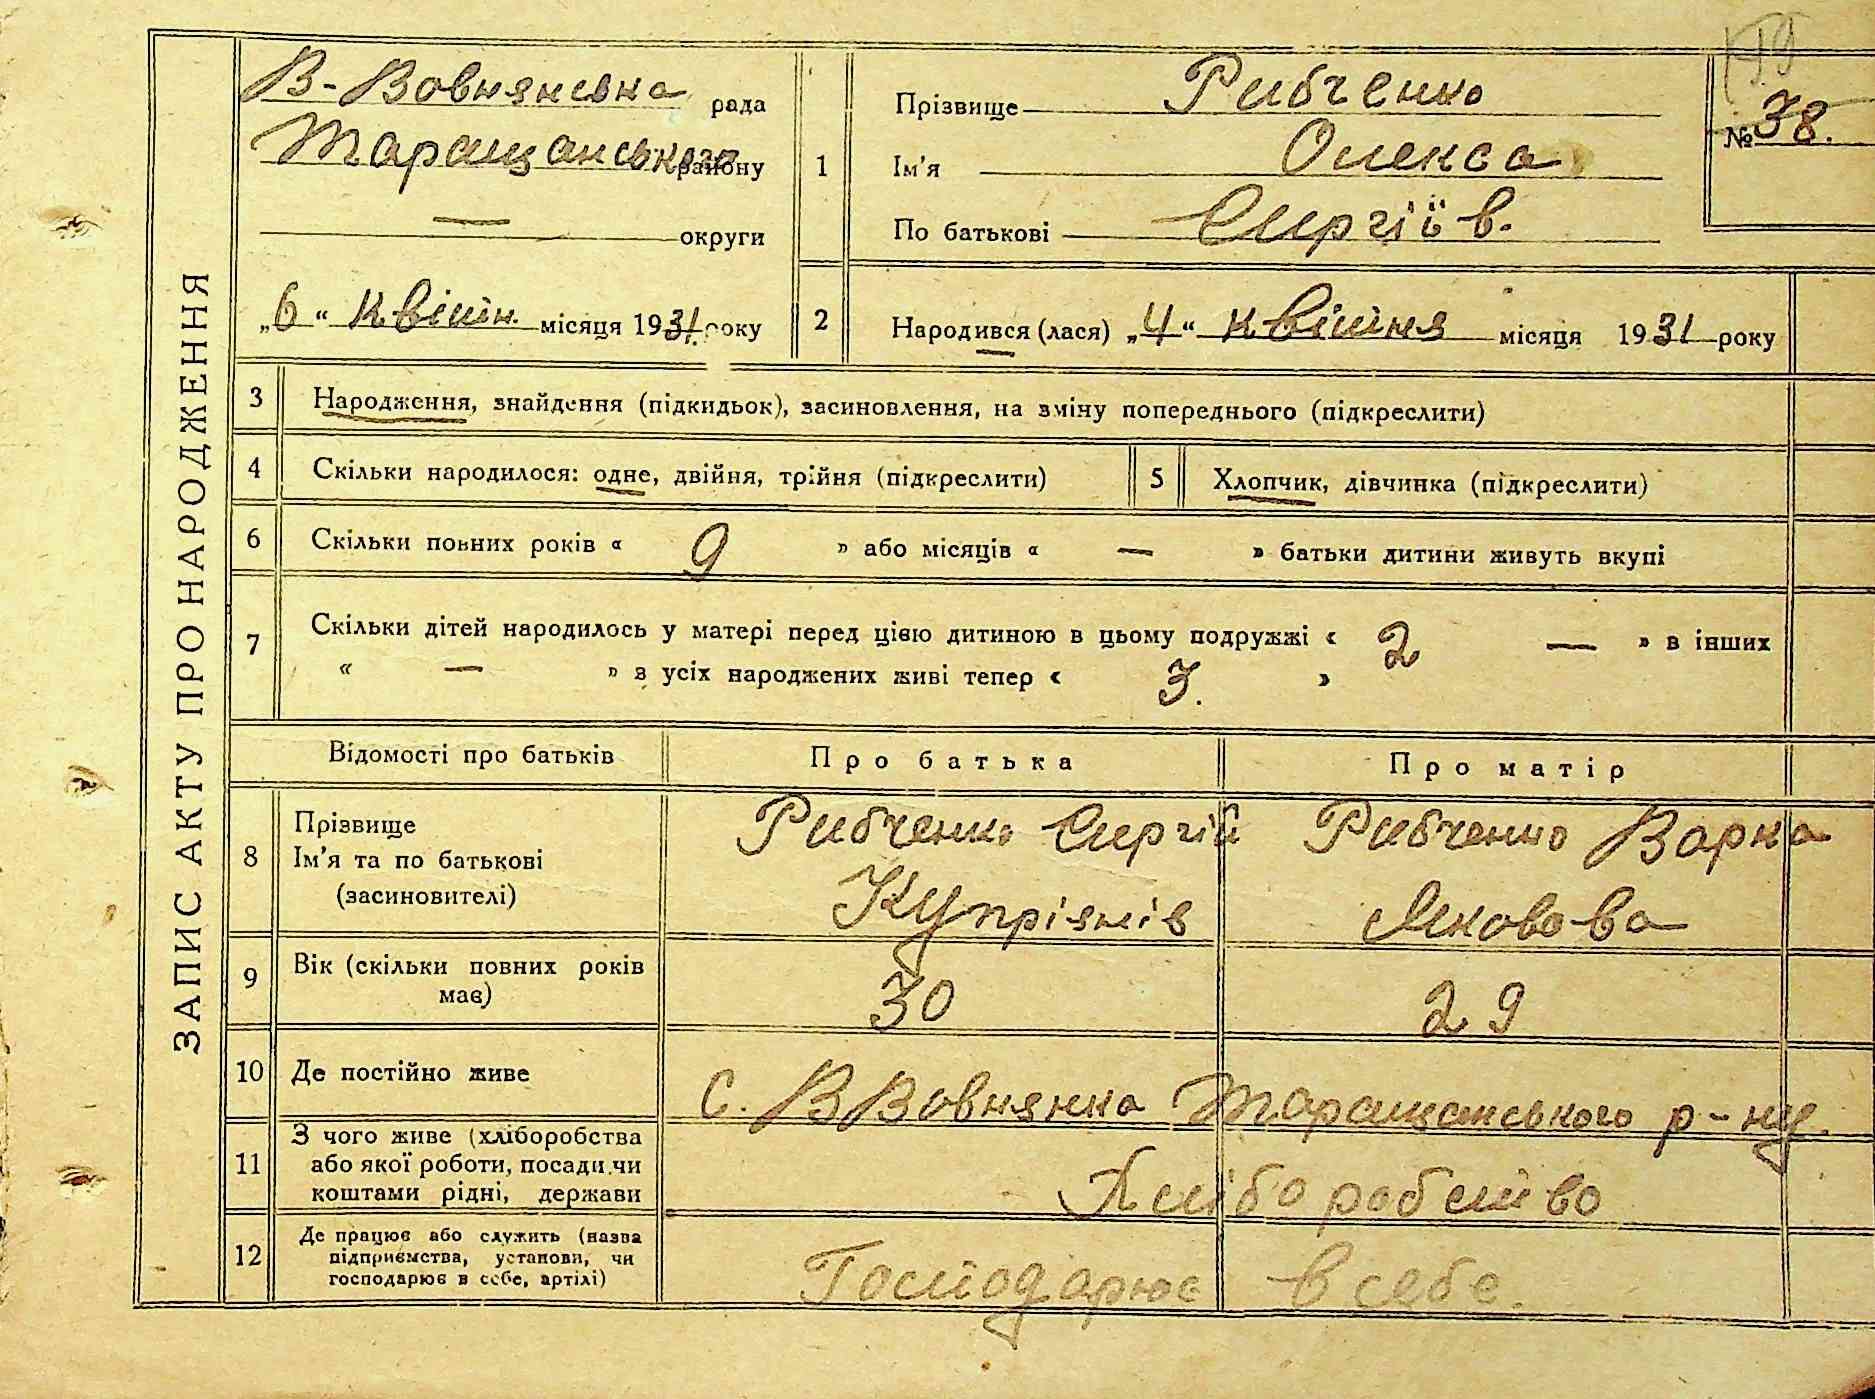 ЗАПИС АКТУ ПРО НАРОДЖЕННЯ
В-Вовнянська рада
Таращанського району
— округи
„6“ квітн. місяця 1931. року
1
Прізвище Рибченко
Ім'я Олекса
По батькові Сиргіїв.
№ 38.
2
Народився (лася) „4“ квітня місяця 1931 року
3 Народження, знайдення (підкидьок), засиновлення, на зміну попереднього (підкреслити)
4 Скільки народилося: одне, двійня, трійня (підкреслити)
5 Хлопчик, дівчинка (підкреслити)
6 Скільки повних років « 9 » або місяців « — » батьки дитини живуть вкупі
7 Скільки дітей народилось у матері перед цією дитиною в цьому подружжі « 2 — » в інших
« — » з усіх народжених живі тепер « 3. »
Відомості про батьків Про батька Про матір
8 Прізвище
Ім'я та по батькові
(засиновителі)
Рибченко Сиргій
Купріянів
Рибченко Варка
Яковова
9 Вік (скільки повних років
має)
30 29
10 Де постійно живе
с. В Вовнянка Таращанського р-ну.
11 З чого живе (хліборобства
або якої роботи, посади чи
коштами рідні, держави
Хліборобство
12 Де працює або служить (назва
підприємства, установи, чи
господарює в себе, артілі)
Господарює в себе.